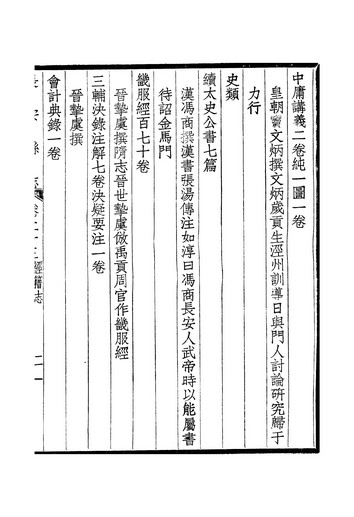 中庸講義二卷純一圖一卷
皇朝竇文炳撰文炳歲貢生涇州訓導日與門人討論研究歸于
力行
史類
續太史公書七篇
漢馮商撰漢書張湯傳注如淳曰馮商長安人武帝時以能屬書
待詔金馬門
畿服經百七十卷
晉摯虞撰隋志晉世摯虞倣禹貢周官作畿服經
三輔決錄注解七卷決疑要注一卷
晉摯虞撰
會計典錄一卷
長安縣志 卷二十三 經籍志 二